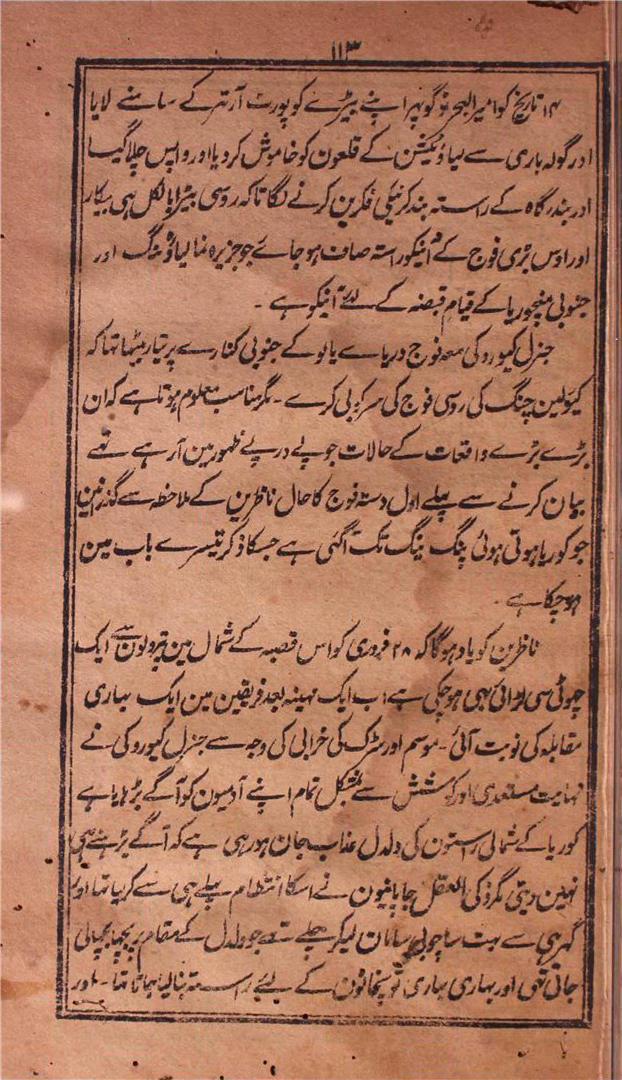 ۱۱۳
۱۴ تاریخ کو امیر البحر ٹوگو پھر اپنے بیڑے کو پورٹ آرتھر کے سامنے لایا
اور گولہ باری سے لیاؤٹکشن کے قلعون کو خاموش کردیا اور واپس چلا گیا
اور بندرگاہ کے راستہ بند کرنیکی فکرین کرنے لگا تاکہ روسی بیڑا بالکل ہی بیکار
اور اوس بڑی فوج کے آنیکو راستہ صاف ہوجائے جو جزیرہ نما لیاؤٹنگ اور
جنوبی منچوریا کے قیام قبضہ کے لئے آنیکو ہے ۔
جنرل کیوروکی معہ فوج دریاے یالو کے جنوبی کنارے پر تیار بیٹھا تھا کہ
کیولین چنگ کی روسی فوج کی سرکوبی کرے ۔ مگر مناسب معلوم ہوتا ہے کہ ان
بڑے بڑے واقعات کے حالات جو پے درپے ظہور مین آرہے تھے
بیان کرنے سے پہلے اول دستہ فوج کا حال ناظرین کے ملاحظہ سے گذرانین
جو کوریا ہوتی ہوئی پنگ ینگ تک آگئی ہے جسکا ذکر تیسرے باب مین
ہوچکا ہے ۔
ناظرین کو یاد ہوگا کہ ۲۸ فروری کو اس قصبہ کے شمال مین قزوقون سے ایک
چھوٹی سی لڑائی بھی ہوچکی ہے اب ایک مہینہ بعد فریقین مین ایک بھاری
مقابلہ کی نوبت آئی ۔ موسم اور سڑک کی خرابی کی وجہ سے جنرل کیوروکی نے
نہایت مستعدی اور کوشش سے بمشکل تمام اپنے آدمیون کو آگے بڑھایا ہے
کوریا کے شمالی راستون کی دلدل عذاب جان ہورہی ہے کہ آگے بڑھنے ہی
نہین دیتی مگر ذکی العقل جاپانیون نے اسکا انتظام پہلے ہی سے کرلیا تھا اور
گھر ہی سے بہت سا چوبی سامان لیکر چلے تھے جو دلدل کے مقام پر بچھا بچھالی
جاتی تھی اور بھاری بھاری توپخانون کے لیئے راستہ بنالیا جاتا تھا ۔ اور